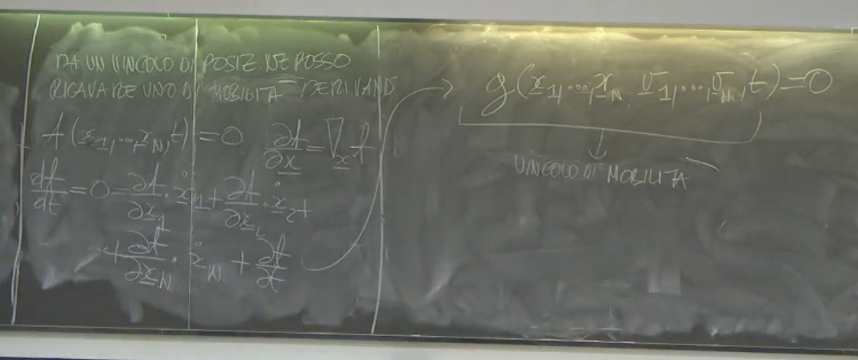 DA UN VINCOLO DI POSIZ. NE POSSO
RICAVARE UNO DI MOBILITÀ DERIVANDO
f(x̲₁,...,x̲_N,t)=0 ∂f/∂x̲=∇_x̲ f
df/dt=0=∂f/∂x̲₁·ẋ̲₁+∂f/∂x̲₂·ẋ̲₂+
...+∂f/∂x̲_N·ẋ̲_N+∂f/∂t
g(x̲₁,...,x̲_N,v̲₁,...,v̲_N,t)=0
VINCOLO DI MOBILITÀ